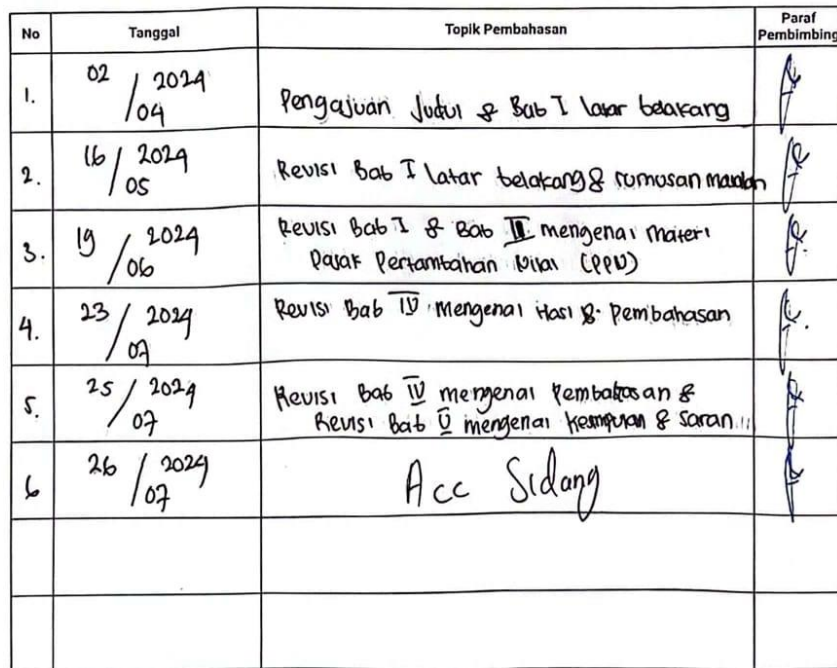 No Tanggal Topik Pembahasan Paraf Pembimbing
1. 02/04 2024 Pengajuan Judul & Bab I latar belakang
2. 16/05 2024 Revisi Bab I latar belakang & rumusan masalah
3. 19/06 2024 Revisi Bab I & Bab II mengenai materi
Pajak Pertambahan Nilai (PPN)
4. 23/07 2024 Revisi Bab IV mengenai Hasil & Pembahasan
5. 25/07 2024 Revisi Bab IV mengenai Pembahasan &
Revisi Bab V mengenai Kesimpulan & Saran
6 26/07 2024 Acc Sidang